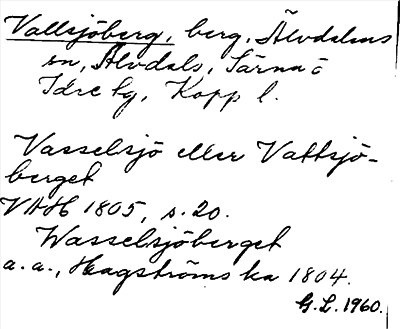 Vallsjöberg, berg, Älvdalens
sn, Älvdals, Särna o
Idre tg, Kopp l.
Vasselsjö eller Vattsjö-
berget
VAH 1805, s. 20.
Wasselsjöberget
a. a., Hagströms ka 1804.
G. L. 1960.